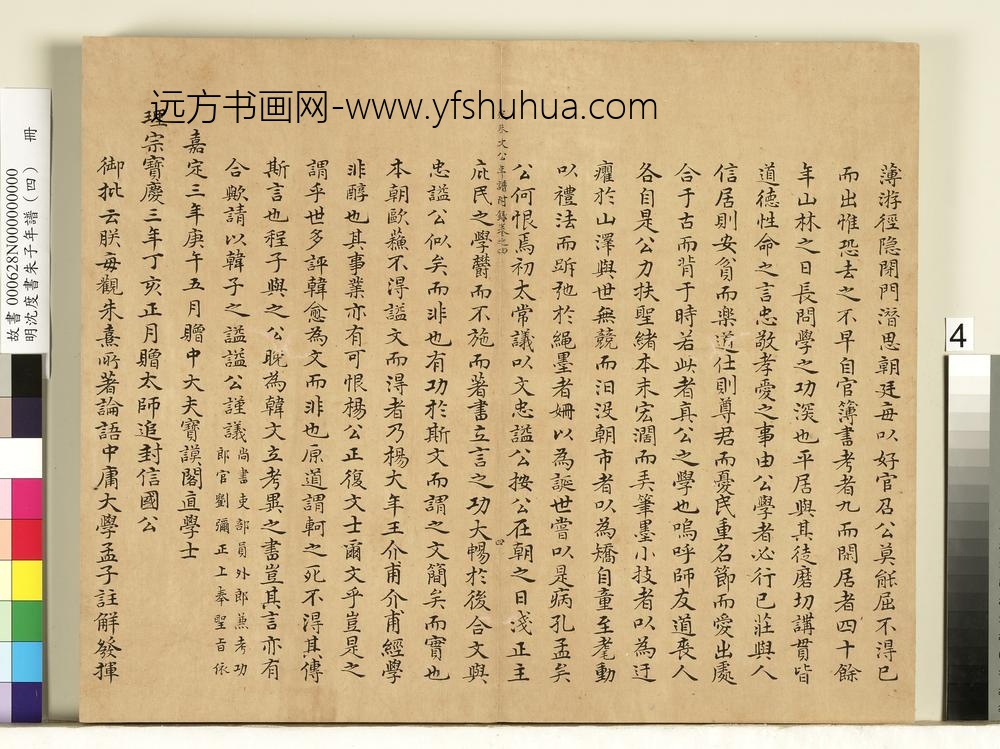 薄游徑隱閑門潛思朝廷每以好官召公莫能屈不得已
而出惟恐去之不早自官簿書考者九而閑居者四十餘
年山林之日長問學之功深也平居與其徒磨切講貫皆
道德性命之言忠敬孝愛之事由公學者必行已莊與人
信居則安貧而樂道仕則尊君而憂民重名節而愛出處
合于古而背于時若此者真公之學也嗚呼師友道喪人
各自是公力扶聖緒本末宏濶而美筆墨小技者以為迂
癯於山澤與世無競而汨没朝市者以為矯自童至耄動
以禮法而跅弛於繩墨者姍以為誕世嘗以是病孔孟矣
公何恨焉初太常議以文忠謚公按公在朝之日淺正主
庇民之學欝而不施而著書立言之功大暢於後合文與
忠謚公似矣而非也有功於斯文而謂之文簡矣而實也
本朝歐蘓不得謚文而得者乃楊大年王介甫介甫經學
非醇也其事業亦有可恨楊公正復文士爾文乎豈是之
謂乎世多評韓愈為文而非也原道謂軻之死不得其傳
斯言也程子與之公晚為韓文立考異之書豈其言亦有
合歟請以韓子之謚謚公謹議
尚書吏部員外郎兼考功
郎官劉彌正上奉聖旨依
嘉定三年庚午五月贈中大夫寶謨閣直學士
理宗寶慶三年丁亥正月贈太師追封信國公
御批云朕每觀朱熹所著論語中庸大學孟子註解發揮
文公年譜附錄卷之四
四
远方书画网-www.yfshuhua.com
故書000628N000000000
冊
明沈度書朱子年譜(四)
4